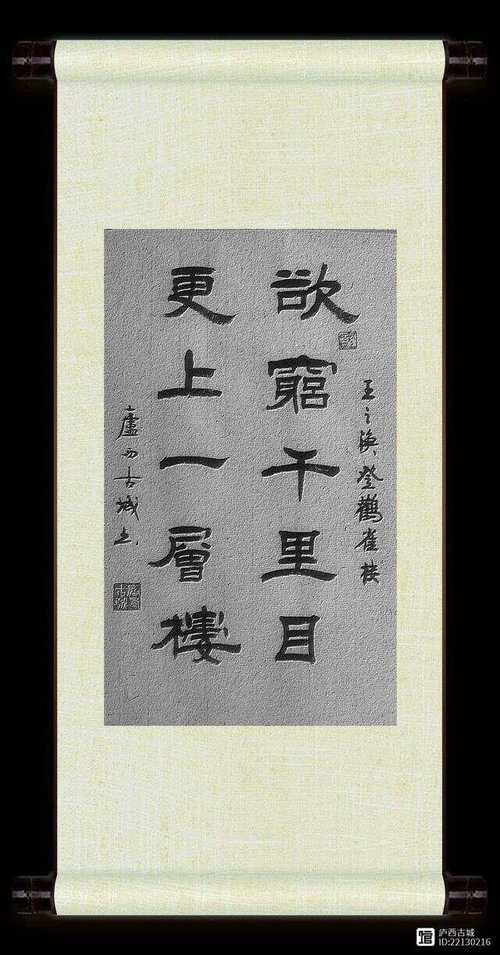 欲窮千里目
更上一層樓
王之渙登鸛雀樓
盧西古城書
庐西古城
ID:22130216